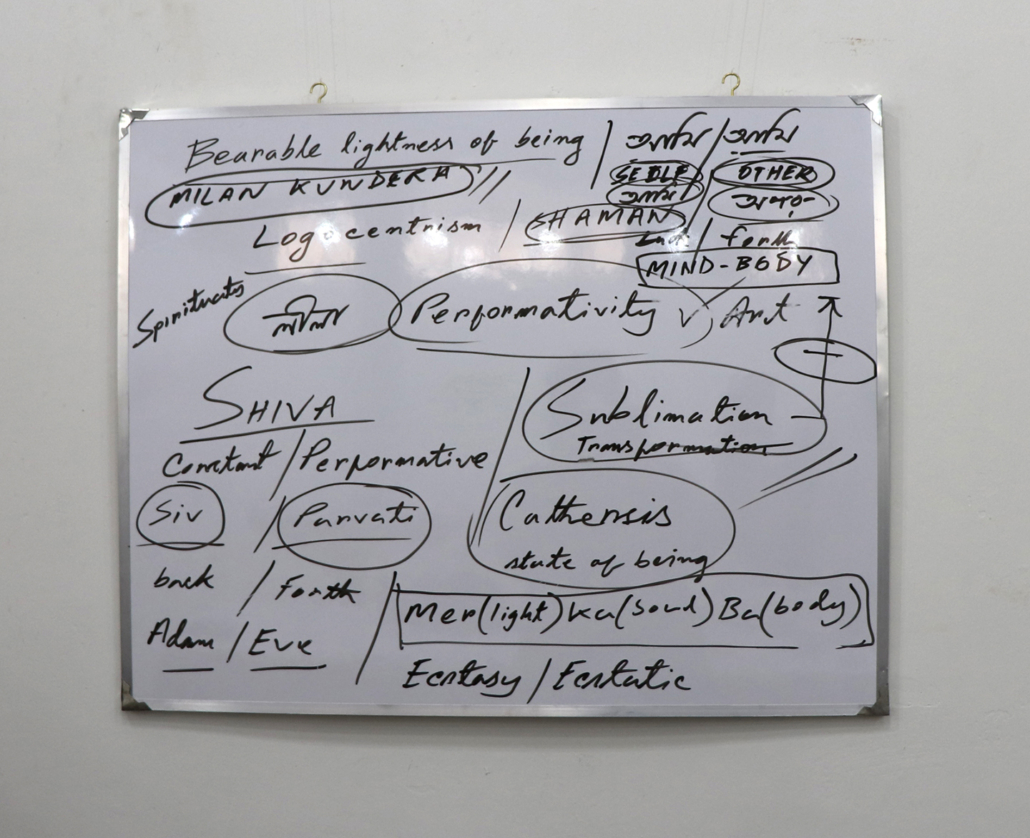 Bearable lightness of being
MILAN KUNDERA
OTHER
Logocentrism / SHAMAN
/ forth
MIND-BODY
Performativity Art
SHIVA
Constant / Performative
Siv / Parvati
back / Forth
Adam / Eve
Sublimation
Transformation
Cathersis
state of being
Mer(light) Ka(Soul) Ba(body)
Ecstasy / Ecstatic